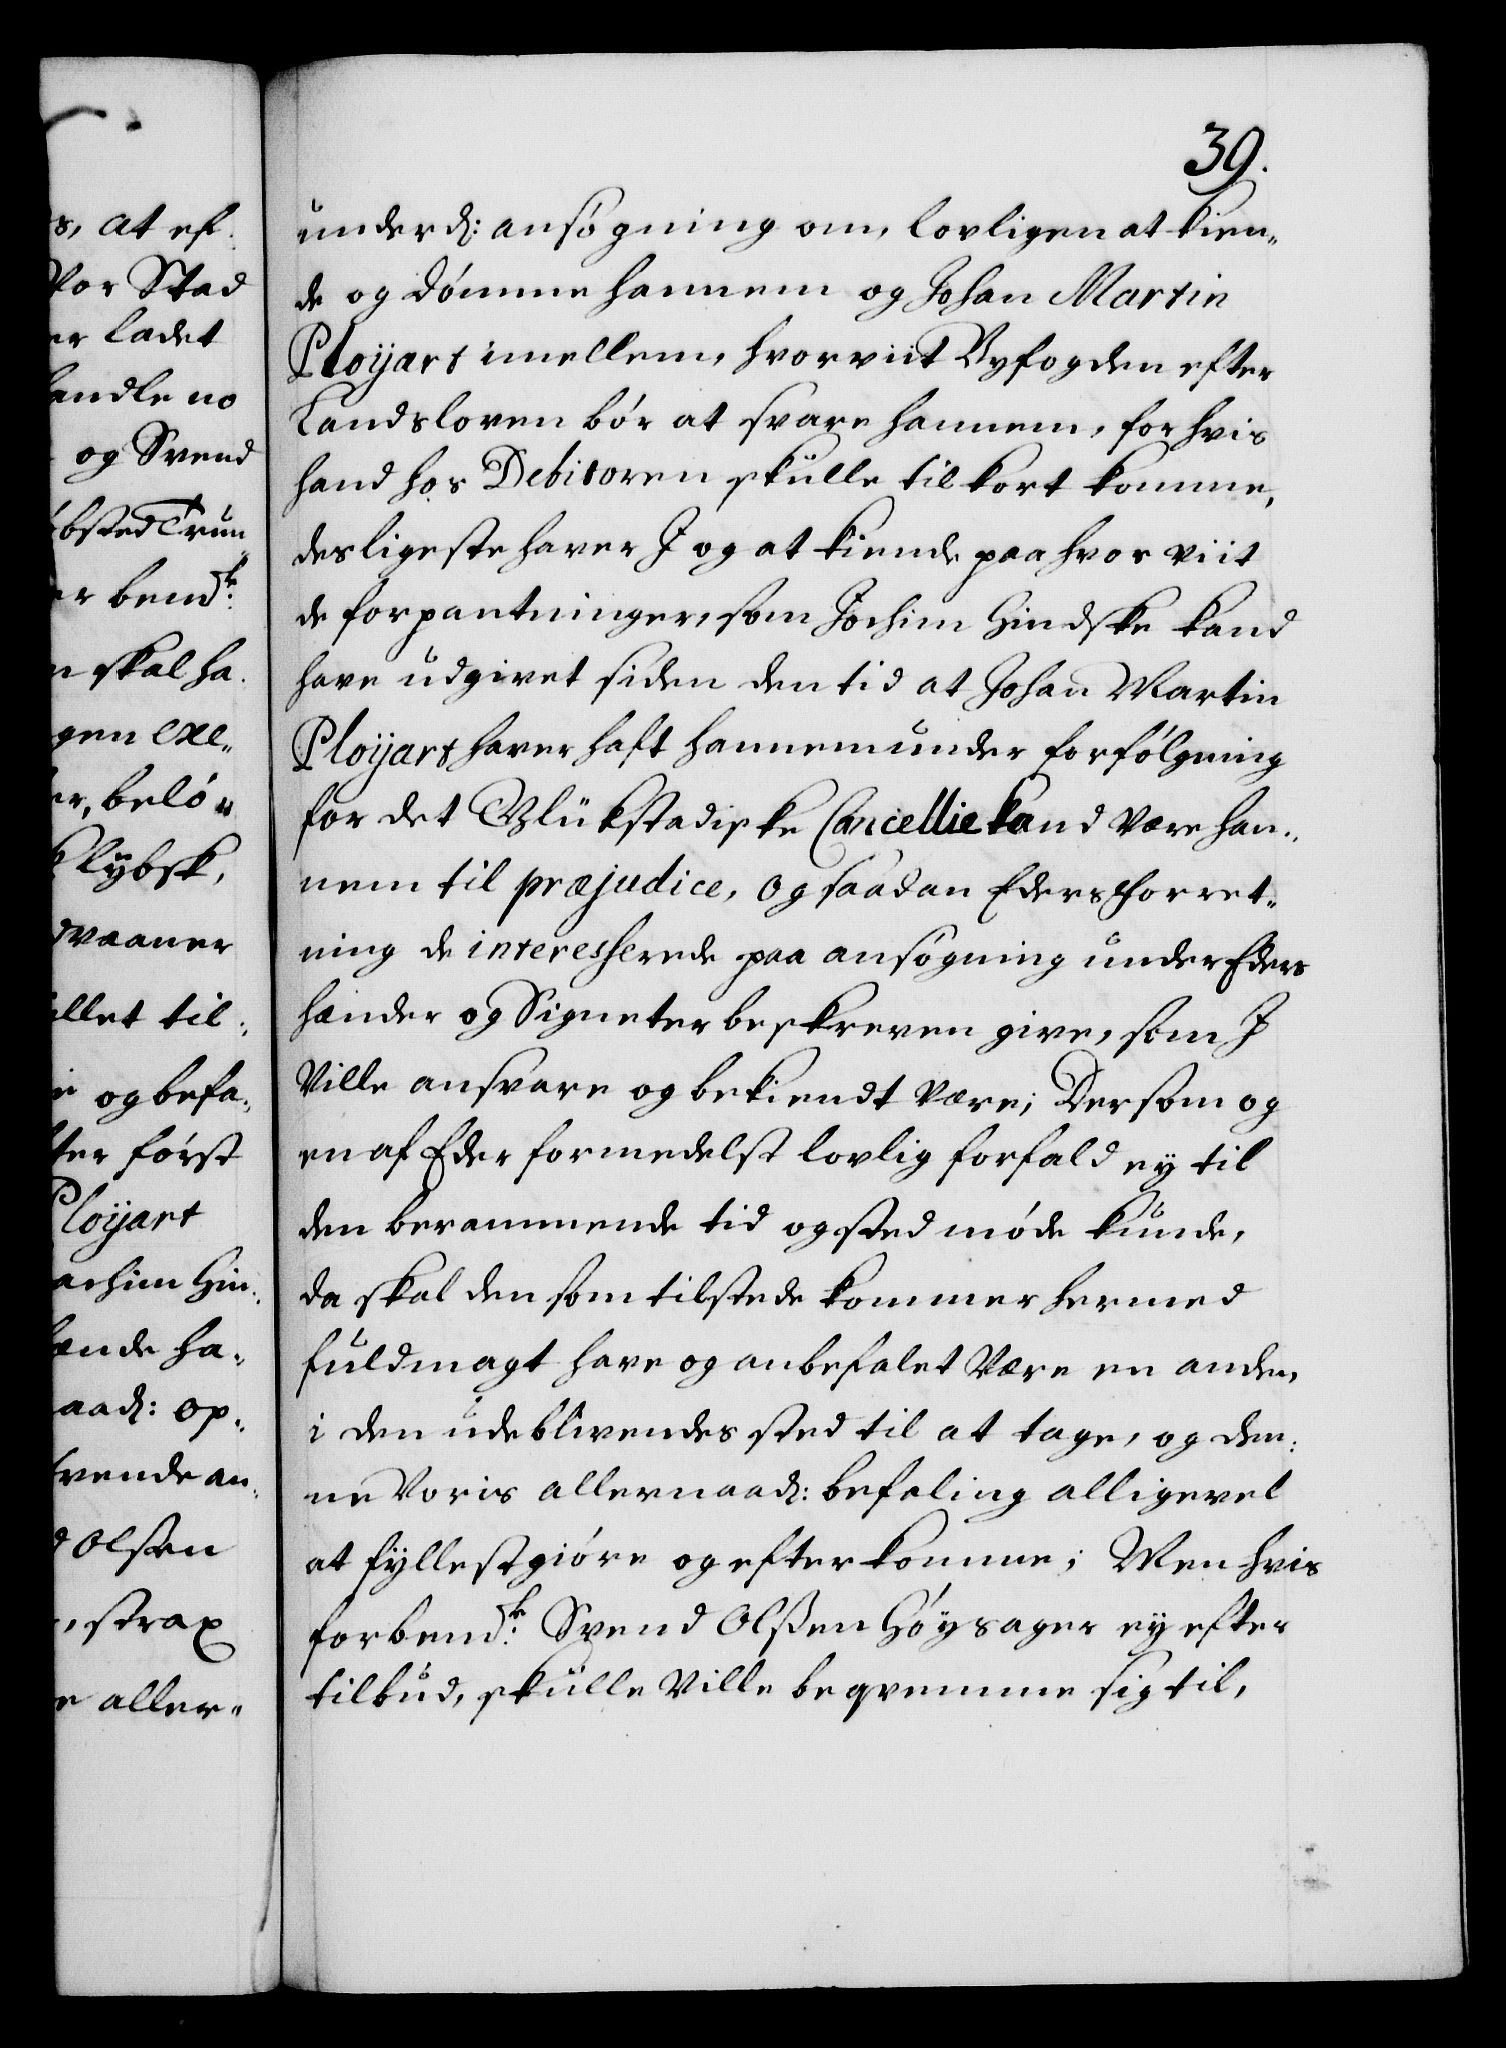 39.
underd: ansøgning om, lovligen at kien-
de og dømme hannem og Johan Martin
Ploÿart imellem, hvorviit Byfogden efter
Landsloven bør at svare hannem, for hvis
hand hos Debitoren skulle til kort komme,
desligeste haver I og at kiende paa hvor viit
de forpantninger, som Jochim Hindske kand
have udgivet siden den tid at Johan Martin
Ploÿart haver haft hannem under forfølgning
for det Glükstadiske Cancellie kand være han-
nem til præjudice, og saadan Eders forret-
ning de interesserede paa ansøgning under Eders
hænder og Signeter beskreven give, som I
Ville ansvare og bekiendt være; Dersom og
en af Eder formedelst lovlig forfald ey til
den berammende tid og sted møde kunde,
da skal den som tilstede kommer hermed
fuldmagt have og anbefalet Være en anden
i den udeblivendes sted til at tage, og den-
ne Voris allernaad: befaling alligevel
at fyllestgiøre og efterkomme; Men hvis
forbend.te Svend Olssen Høysager ey efter
tilbud, skulle Ville beqvemme sig til,
s, at ef-
Vor Stad
er ladet
handle no
og Svend
bsted Trun
er bend.te
n skal ha-
gen exe-
er, belø-
lybsk,
dvaaner
illet til-
og befa-
ter først
Ploÿart
achim Hin-
hænde ha-
aad: op-
ivende an-
d Olssen
, strax
e aller-